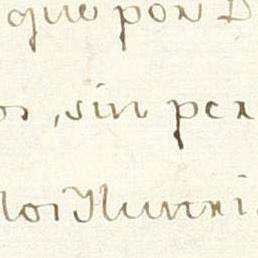 que por D
os, sin per
los Ilumi